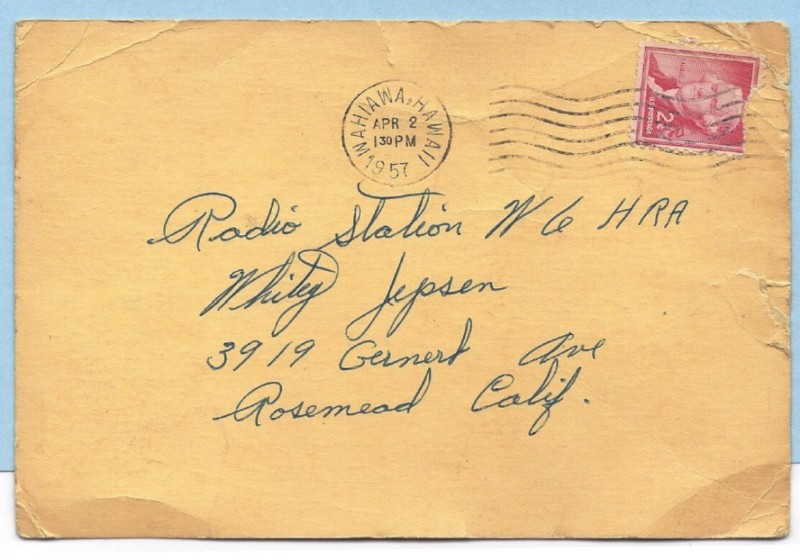 WAHIAWA, HAWAII
APR 2
1 30 PM
1957
U.S. POSTAGE
2¢
Radio Station W6 HRA
Whitey Jepsen
3919 Gernert Ave
Rosemead Calif.